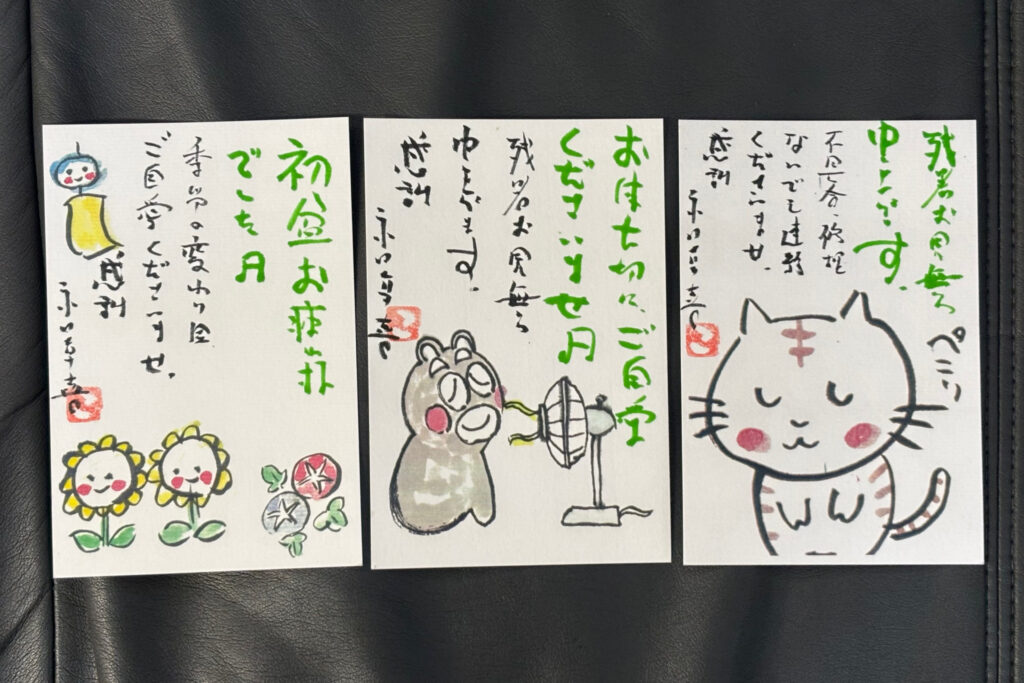 初盆お疲れ
でした
季節の変わり目
ご自愛くださいませ。
感謝
お体大切に、ご自愛
くださいませ
残暑お見舞い
申し上げます。
感謝
残暑お見舞い
申し上げます。
不具合、修理
なんでも連絡
くださいませ。
感謝
ぺこり